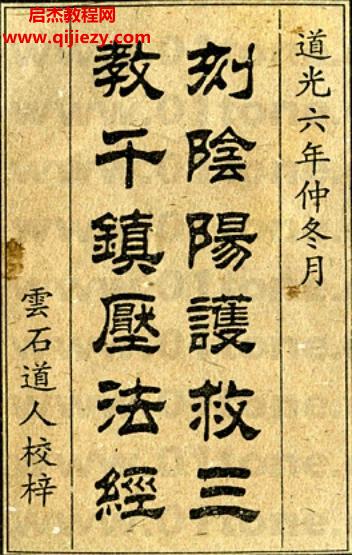 启杰教程网
www.qijiezy.com
道光六年仲冬月
刻陰陽護救三
教千鎮壓法經
雲石道人校梓